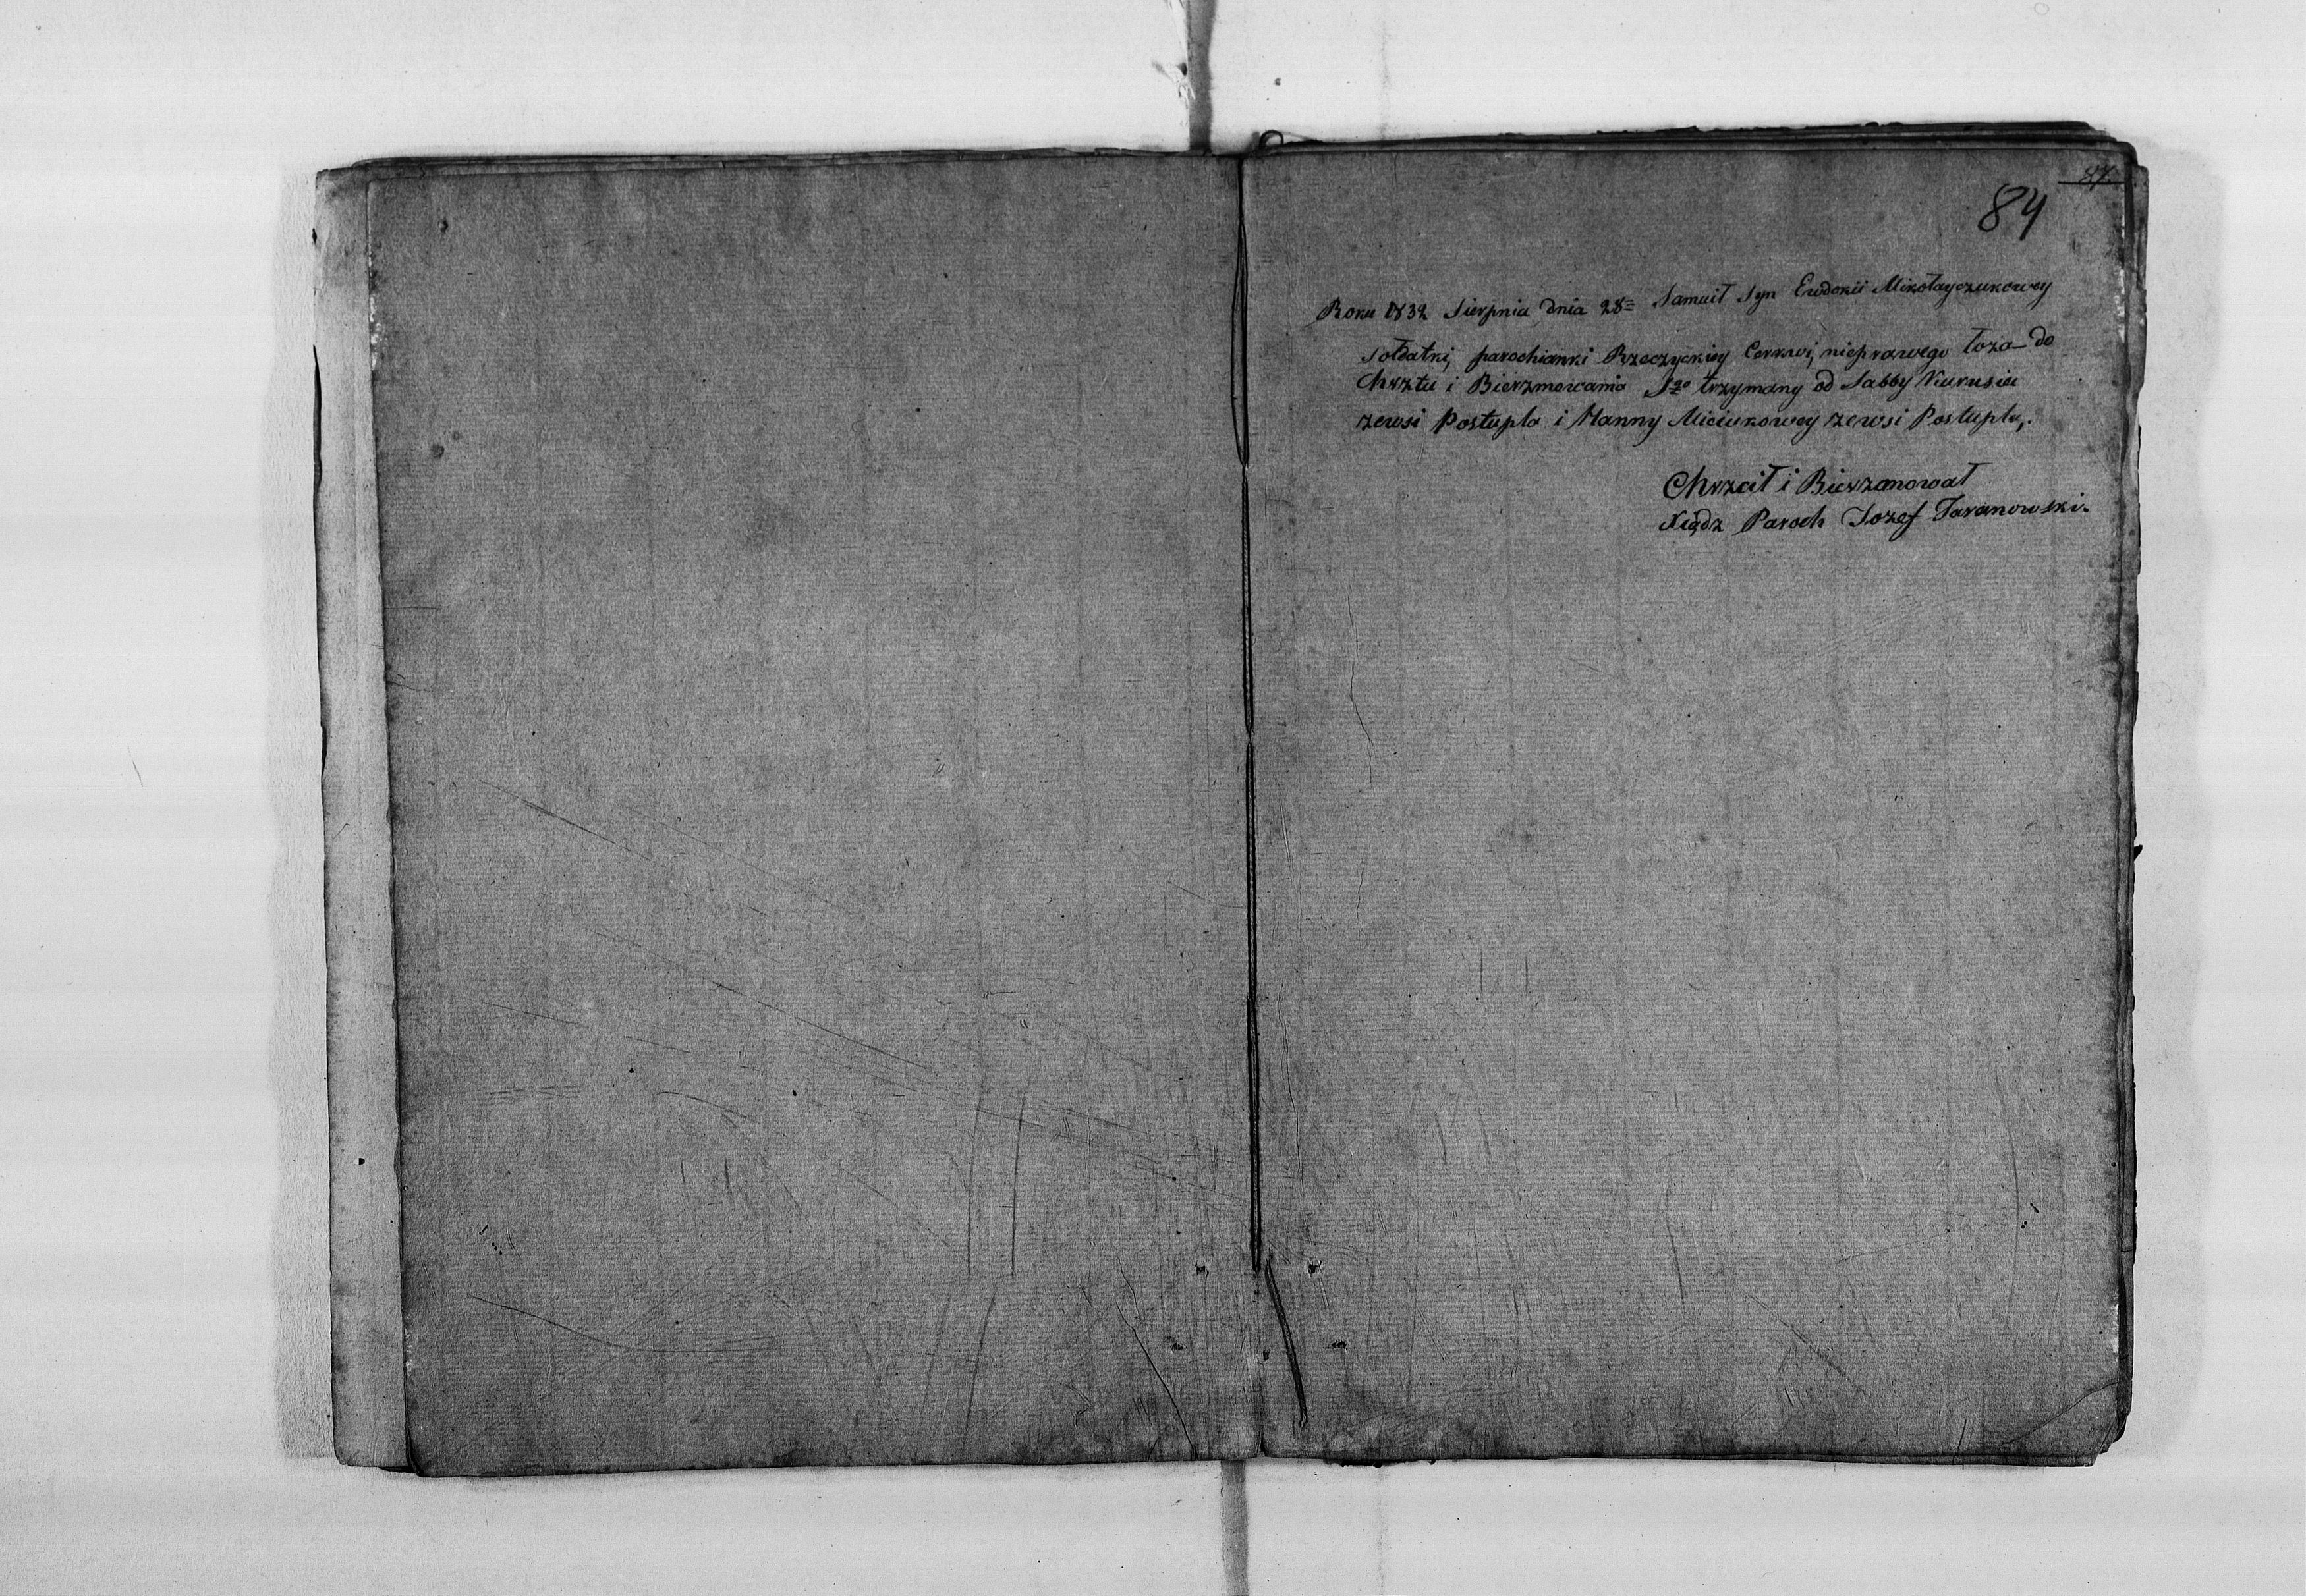 84
Roku 1832 Sierpnia dnia 28 Samuił Syn Ewdokii Mikołayczukowey
Sołdatki, parochianki Rzeczyckiey Cerkwi, nieprawego łoża do
Chrztu i Bierzmowania Sgo trzymany od Sabby
zewsi Postupla i Hanny Miciukowey zewsi Postupla,.
Chrzcił i Bierzmował
Xiądz Paroch Jozef Taranowski.